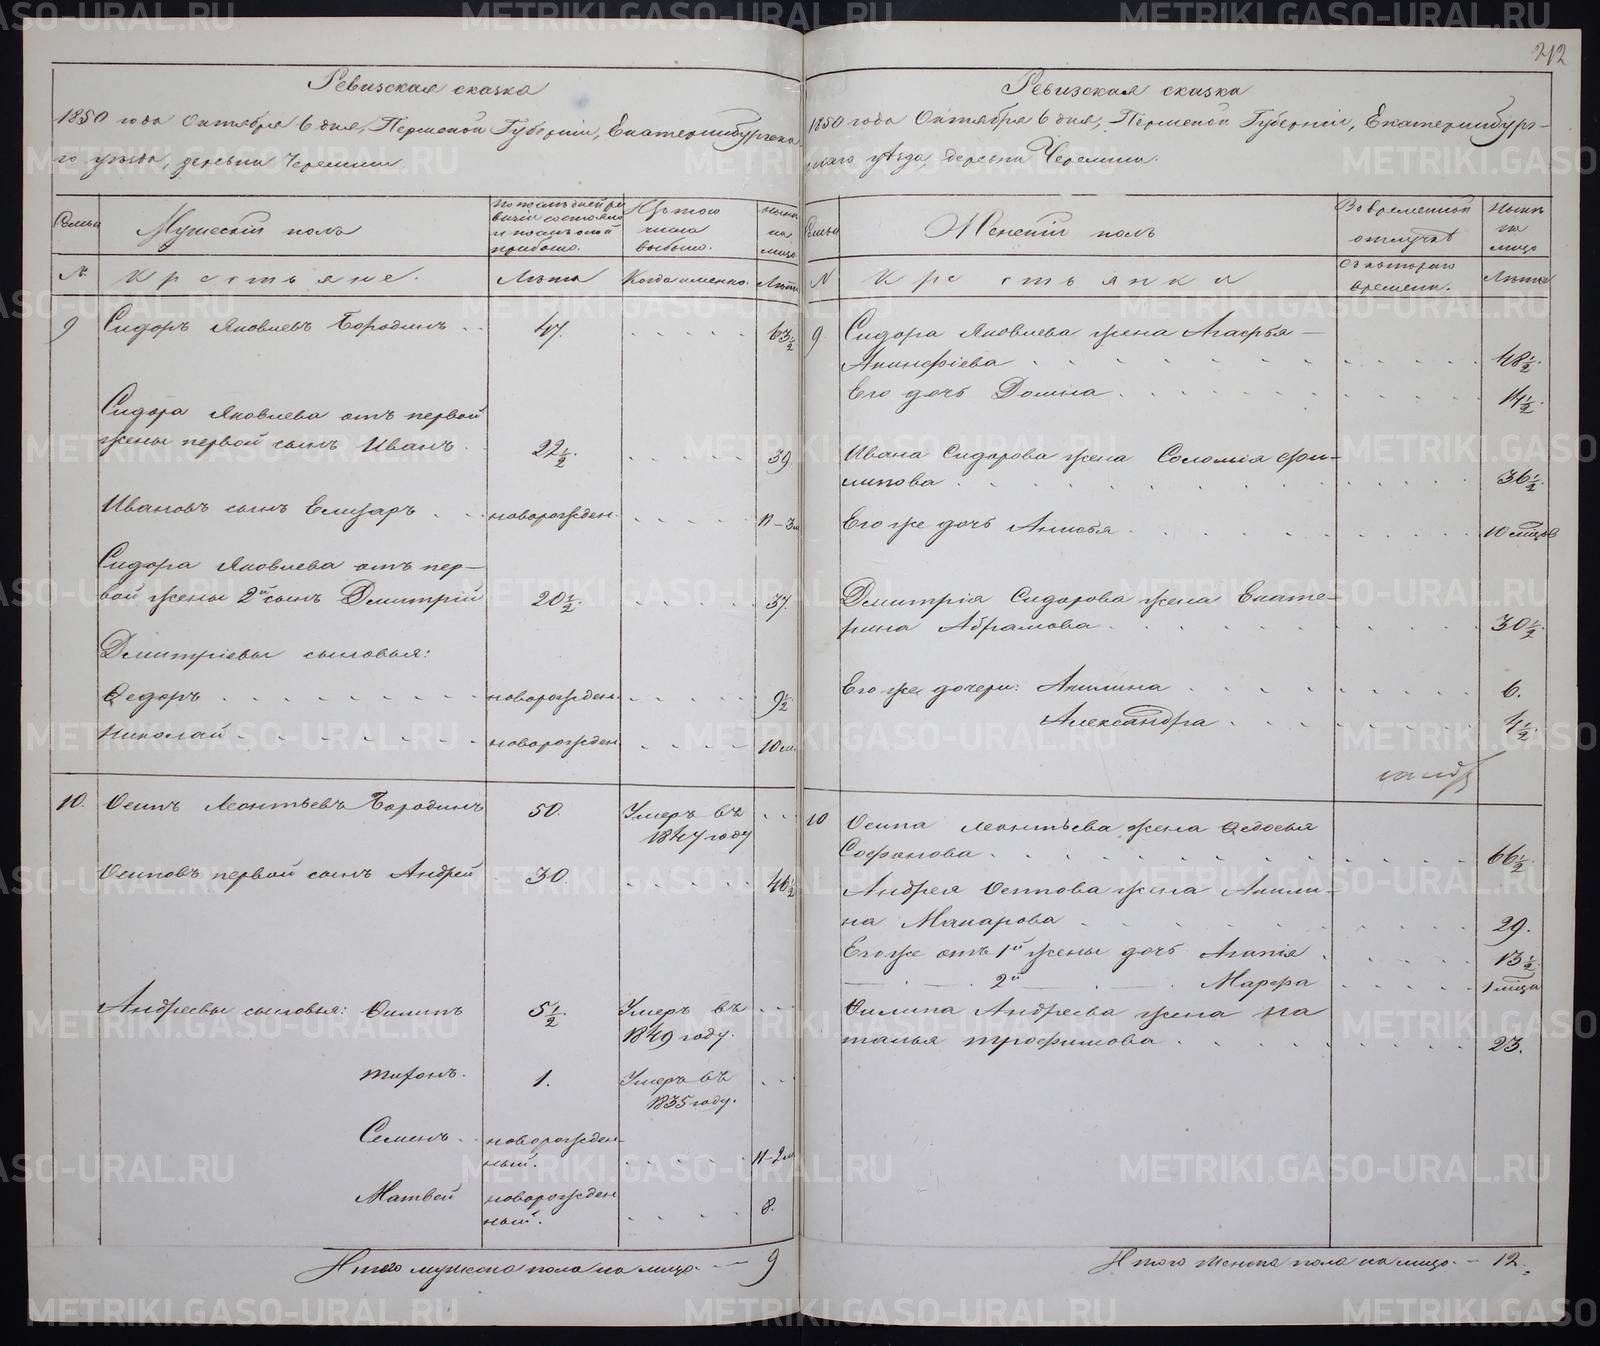 212
Ревизская сказка
1850 года Октября 6 дня, Пермской Губернiи, Екатеринбургска-
го уѣзда, деревни Черемши.
Семьи
Мужескiй полъ
По послѣдней ре
визiи состояло
и послѣ оной
прибыло.
Изъ того
числа
выбыло.
Нынѣ
на
лицо.
№
Крестьяне.
Лѣта
Когда именно.
Лѣта
9 Сидоръ Яковлевъ Бородинъ . . 47. . . . . . 63 1/2
Сидора Яковлева отъ первой
жены первой сынъ Иванъ. 22 1/2. . . . . . 39
Ивановъ сынъ Елизаръ . . . новорожден. . . . . 11 - 3 м
Сидора Яковлева отъ пер-
вой жены 2й сынъ Дмитрiй 20 1/2. . . . . . 37.
Дмитрiевы сыновья:
Ѳедоръ . . . . . . . новорожден. . . . . 9 1/2
Николай . . . . . . . новорожден. . . . . 10 м.
10. Осипъ Леонтьевъ Бородинъ 50. Умеръ въ . .
1847 году
Осиповъ первой сынъ Андрей 30. . . . . . 46 1/2
Андреевы сыновья: Филипъ 5 1/2. Умеръ въ . . .
1849 году.
Тихонъ. 1. Умеръ въ . . .
1835 году.
Семенъ . . новорожден-
ный. . . . . . 11 - 2 м
Матвей новорожден
ный. . . . . 8.
Итого мужеска пола на лицо. - - 9
Ревизская сказка
1850 года Октября 6 дня, Пермской Губернiи, Екатеринбург-
скаго уѣзда, деревни Черемши.
Семьи
Женскiй полъ
Во временной
отлучкѣ
Нынѣ
на
лицо
N
Крестьянки
Съ котораго
времени.
Лѣта
9 Сидора Яковлева жена Агафья -
Акинфiева . . . . . . . . 48 1/2.
Его дочь Домна . . . . . . . . 14 1/2.
Ивана Сидорова жена Соломiя Фи-
липова . . . . . . . . 36 1/2.
Его же дочь Анисья . . . . . . . . 10 мѣсяцов
Дмитрiя Сидорова жена Екате-
рина Абрамова . . . . . . . . 30 1/2.
Его же дочери: Акилина . . . . . . . 6.
Александра . . . . . . . 1/2.
10 Осипа Леонтьева жена Ѳедосья
Софонова . . . . . . . . 66 1/2.
Андрея Осипова жена Акили-
на Макарова . . . . . . . 29.
Его же отъ 1й жены дочь Агапiя . . . . . 13 1/2.
— . — . 2й — . — . Марфа . . . . 1 мѣсяца
Филипа Андреева жена На
талья Трофимова . . . . . . . 23.
Итого Женска пола на лицо. - 12.
METRIKI.GASO-URAL.RU